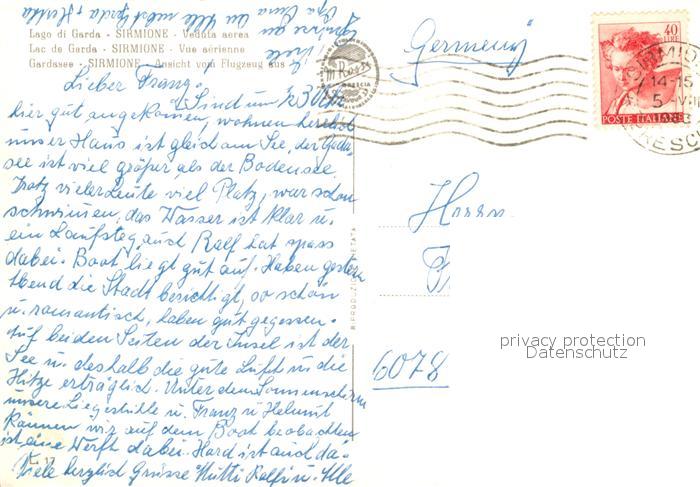 Lago di Garda - SIRMIONE - Veduta aerea
Lac de Garda - SIRMIONE - Vue aérienne
Gardasee - SIRMIONE - Ansicht vom Flugzeug aus
Lieber Franz,
Sind um ½ 3 Uhr
hier gut angekommen, wohnen herrlich
unser Haus ist gleich am See, der Garda-
see ist viel größer als der Bodensee.
Trotz vieler Leute viel Platz, war schon
schwimmen, das Wasser ist klar u.
ein Laufsteg, auch Ralf hat spass
dabei. Boot liegt gut auf. Haben gestern
Abend die Stadt besichtigt, so schön
u. romantisch, haben gut gegessen.
Auf beiden Seiten der Insel ist der
See u. deshalb die gute Luft u. die
Hitze erträglich. Unter dem Sonnenschirm
unsere Liegestühle u. Franz u. Helmut
können wir auf dem Boot beobachten
ist eine Werft dabei. Hard ist auch da.
Viele herzlich Grüsse Mutti Ralf u. Alle
RIPRODUZIONE VIETATA
Germany
40
LIRE
POSTE ITALIANE
SIRMIONE
14-15
5
BRESCIA
Herrn
6078
privacy protection
Datenschutz